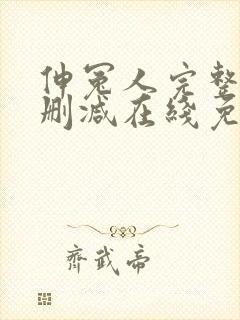 伸冤人完整
删减在线免
齊武帝